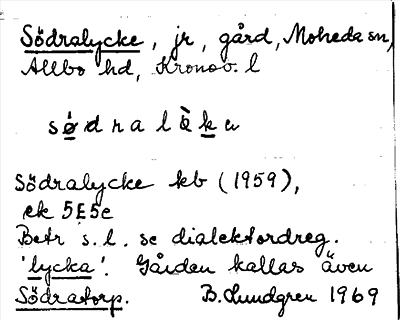 Södralycke, jr, gård, Moheda sn,
Allbo hd, Kronob. l
södralèka
Södralycke kb (1959),
ek 5E5e
Betr s.l. se dialektordreg.
'lycka'. Gården kallas även
Södratorp. B. Lundgren 1969